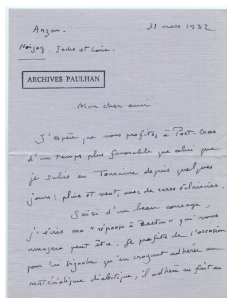 Anzan. 31 mars 1932
Noizay. Indre et Loire.
ARCHIVES PAULHAN
Mon cher ami
J'espère que vous profitez, à Port-Cros
d'un temps plus favorable que celui que
je subis en Touraine depuis quelques
jours : pluie et vent, avec de rares éclaircies.
Saisi d'un beau courage,
j'écris ma "réponse à Bastin" qui vous
amusera peut être. Je profite de l'occasion
pour lui signaler qu'en croyant adhérer au
matérialisme dialectique, il adhère en fait au